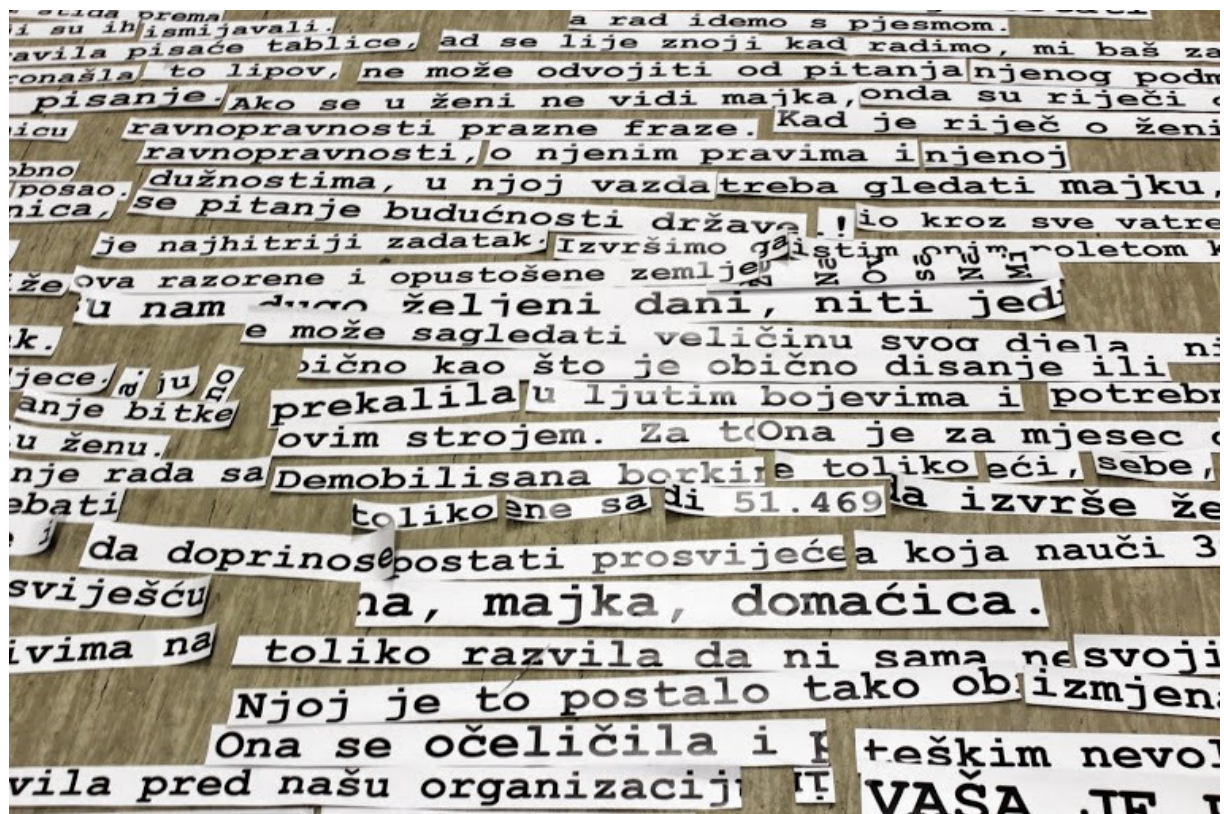 stida prema
i su ih ismijavali. a rad idemo s pjesmom.
avila pisaće tablice, ad se lije znoji kad radimo, mi baš za
ronašla to lipov, ne može odvojiti od pitanja njenog podm
pisanje. Ako se u ženi ne vidi majka, onda su riječi o
icu ravnopravnosti prazne fraze. Kad je riječ o ženi
ravnopravnosti, o njenim pravima i njenoj
obno
posao. dužnostima, u njoj vazda treba gledati majku,
nica, se pitanje budućnosti države . ! io kroz sve vatre
je najhitriji zadatak. Izvršimo istim onim poletom k
že ova razorene i opustošene zemlje
u nam dugo željeni dani, niti jed
k. e može sagledati veličinu svog djela ni
ično kao što je obično disanje ili
jece. a. ju no
anje bitke prekalila u ljutim bojevima i potrebn
u ženu. ovim strojem. Za to Ona je za mjesec
nje rada sa Demobilisana borkin e toliko eći, sebe,
ebati toliko ene sa di 51.469 da izvrše že
da doprinose postati prosvijeće a koja nauči 3
sviješću na, majka, domaćica.
ivima na toliko razvila da ni sama ne svoji
Njoj je to postalo tako ob izmjena
Ona se očeličila i p teškim nevol
vila pred našu organizacij VAŠA JE